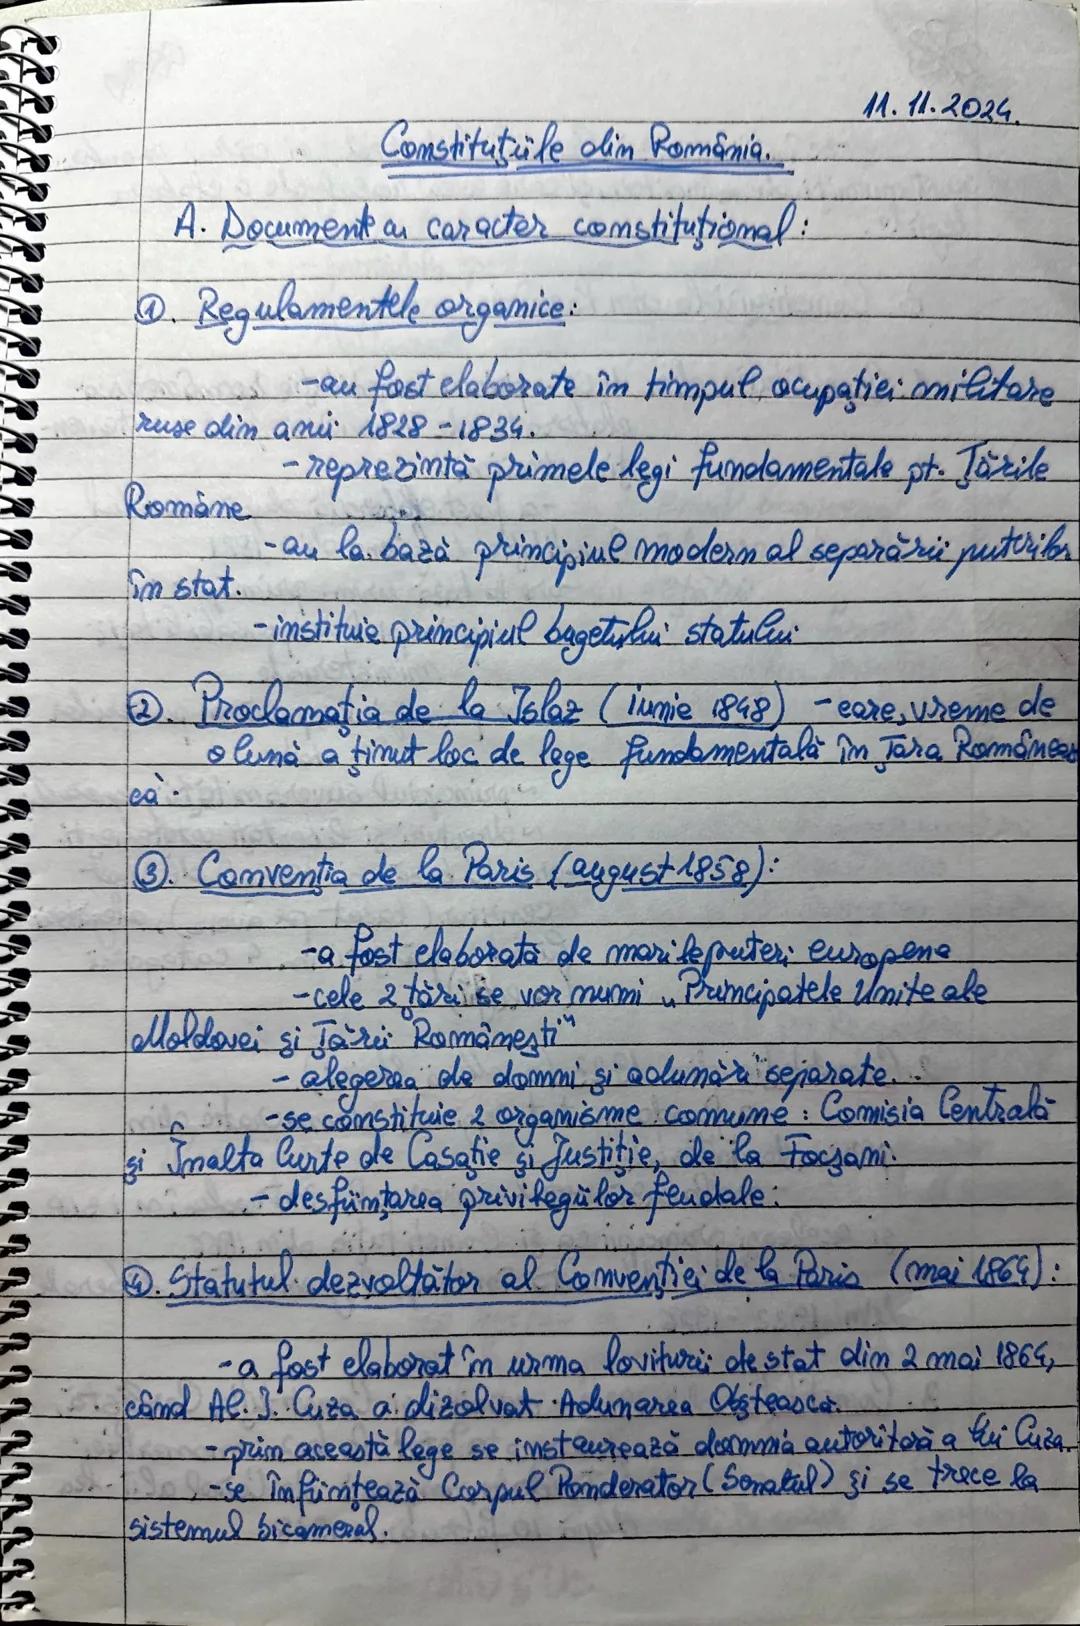 11.11.2024.
Constituțiile din România.
A. Document cu caracter constituțional:
①. Regulamentele organice:
-au fost elaborate în timpul ocupației militare
ruse din anii 1828-1834.
-reprezintă primele legi fundamentale pt. Țările
Române
-au la bază principiul modern al separării puterilor
în stat.
-instituie principiul bugetului statului
②. Proclamația de la Islaz (iunie 1848) -care, vreme de
o lună a ținut loc de lege fundamentală în Țara Româneas
că.
③. Convenția de la Paris (august 1858):
-a fost elaborată de marile puteri europene
-cele 2 țări se vor numi „Principatele Unite ale
Moldovei și Țării Românești"
-alegerea de domni și adunări separate.
-se constituie 2 organisme comune: Comisia Centrală
și Înalta Curte de Casație și Justiție, de la Focșani.
-desființarea privilegiilor feudale.
④. Statutul dezvoltător al Convenției de la Paris (mai 1864):
-a fost elaborat în urma loviturii de stat din 2 mai 1864,
când Al. I. Cuza a dizolvat Adunarea Obștească.
-prin această lege se instaurează domnia autoritară a lui Cuza.
-se înființează Corpul Ponderator (Senatul) și se trece la
sistemul bicameral.